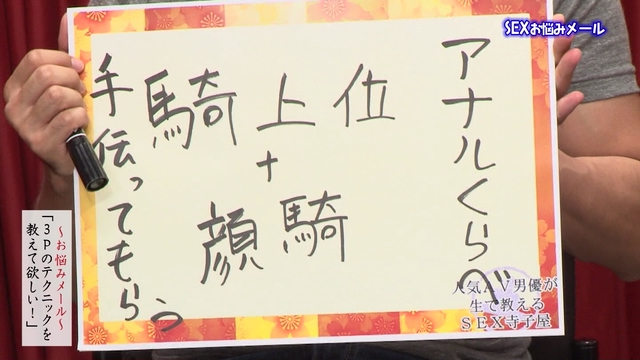 SEXお悩みメール
アナルくらべ
騎上位
+
顔騎
手伝ってもらう
～お悩みメール～
「3Pのテクニックを
教えて欲しい！」
人気AV男優が
生で教える
SEX寺子屋